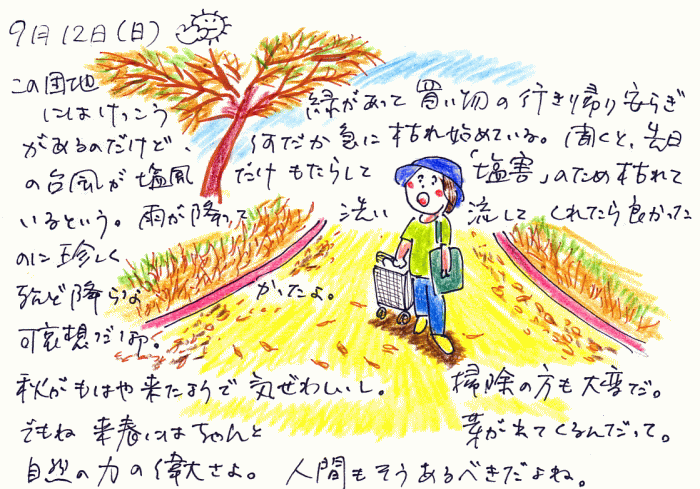 9月12日(日)
この団地
にはけっこう 緑があって 買い物の行き帰り安らぎ
があるのだけど、 何だか急に枯れ始めている。聞くと、先日
の台風が塩風 だけもたらして 「塩害」のため枯れて
いるという。雨が降って 洗い 流して くれてたら良かった
のに珍しく
殆ど降らな かったよ。
可哀想だ。
秋がもはや来たようで 気ぜわしいし。 掃除の方も大変だ。
でもね 来春にはちゃんと 芽が出てくるんだって。
自然の力の偉大さよ。 人間もそうあるべきだよね。